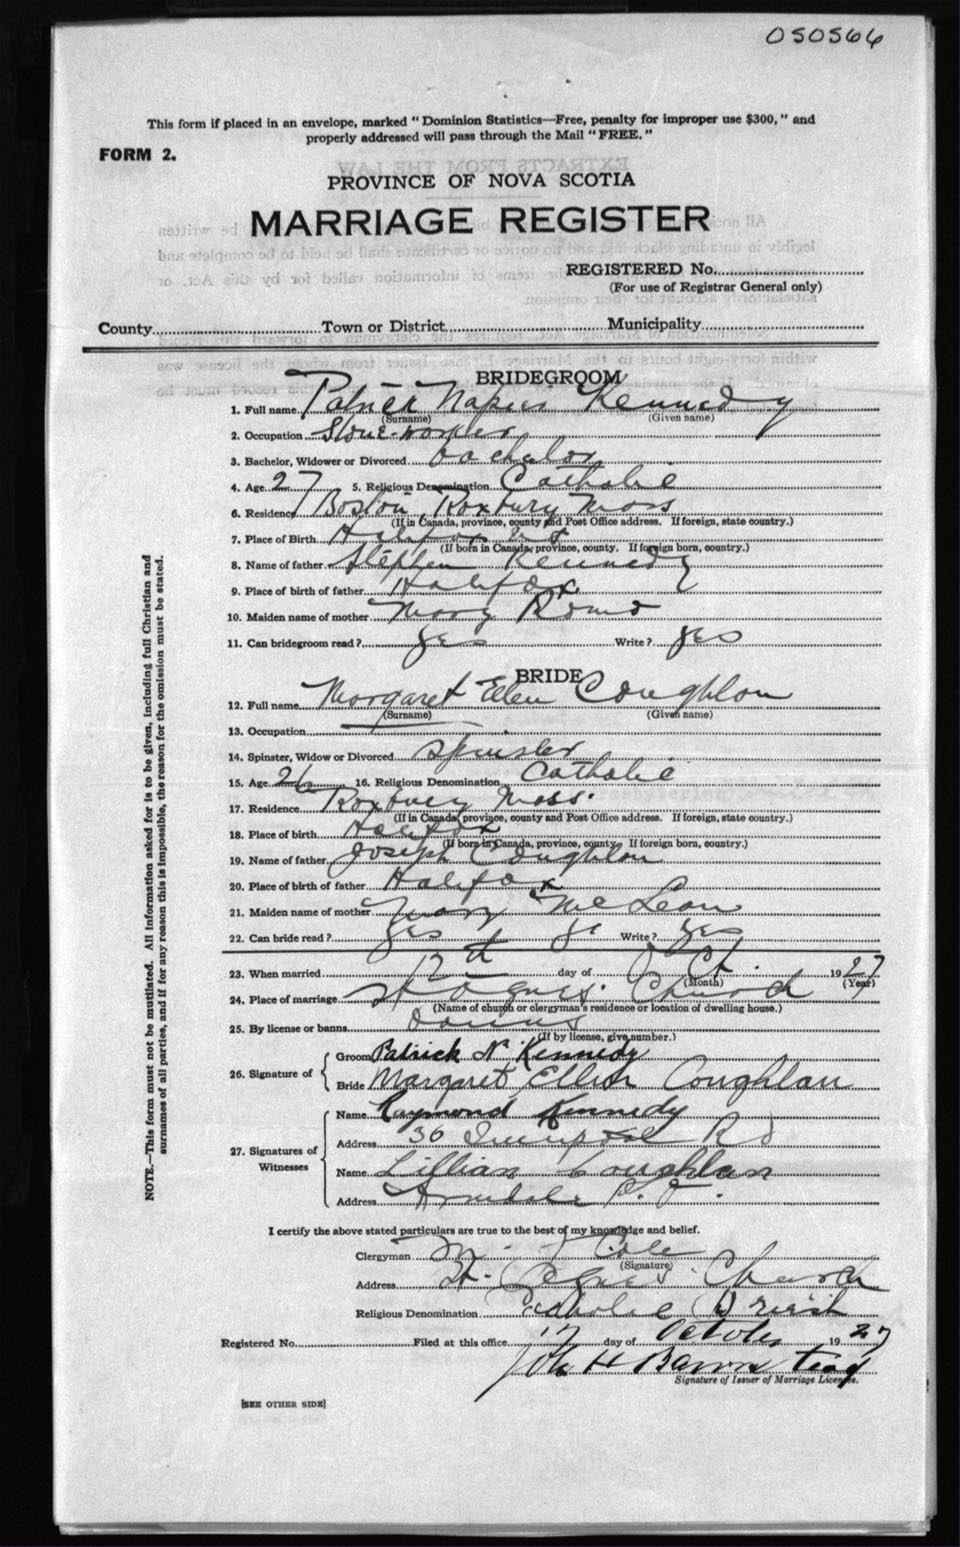 050566
This form if placed in an envelope, marked "Dominion Statistics—Free, penalty for improper use $300," and
properly addressed will pass through the Mail "FREE."
FORM 2.
PROVINCE OF NOVA SCOTIA
MARRIAGE REGISTER
REGISTERED No.
(For use of Registrar General only)
County Town or District Municipality
BRIDEGROOM
1. Full name Patrick Napier Kennedy
(Surname) (Given name)
2. Occupation Stone-worker
3. Bachelor, Widower or Divorced bachelor
4. Age 27 5. Religious Denomination Catholic
6. Residence Boston Roxbury Mass
(If in Canada, province, county and Post Office address. If foreign, state country.)
7. Place of Birth Halifax N S
(If born in Canada, province, county. If foreign born, country.)
8. Name of father Stephen Kennedy
9. Place of birth of father Halifax
10. Maiden name of mother Mary
11. Can bridegroom read? yes Write? yes
BRIDE
12. Full name Margaret Ellen Coughlan
(Surname) (Given name)
13. Occupation
14. Spinster, Widow or Divorced Spinster
15. Age 26 16. Religious Denomination Catholic
17. Residence Roxbury Mass.
(If in Canada, province, county and Post Office address. If foreign, state country.)
18. Place of birth Halifax
(If born in Canada, province, county. If foreign born, country.)
19. Name of father Joseph Coughlan
20. Place of birth of father Halifax
21. Maiden name of mother Mary McLean
22. Can bride read? yes Write? yes
23. When married 12th day of Oct. 1927
(Month) (Year)
24. Place of marriage St Agnes Church
(Name of church or clergyman's residence or location of dwelling house.)
25. By license or banns banns
(If by license, give number.)
26. Signature of
Groom Patrick N. Kennedy
Bride Margaret Ellen Coughlan
27. Signatures of Witnesses
Name Raymond Kennedy
Address 36 Rd
Name Lillian Coughlan
Address Armdale P.O.
I certify the above stated particulars are true to the best of my knowledge and belief.
Clergyman M. J Cole
(Signature)
Address St. Agnes Church
Religious Denomination Catholic Priest
Registered No. Filed at this office 17 day of October 1927
John H Barnstead
Signature of Issuer of Marriage Licenses.
[SEE OTHER SIDE]
NOTE.—This form must not be mutilated. All information asked for is to be given, including full Christian and
surnames of all parties, and if for any reason this is impossible, the reason for the omission must be stated.